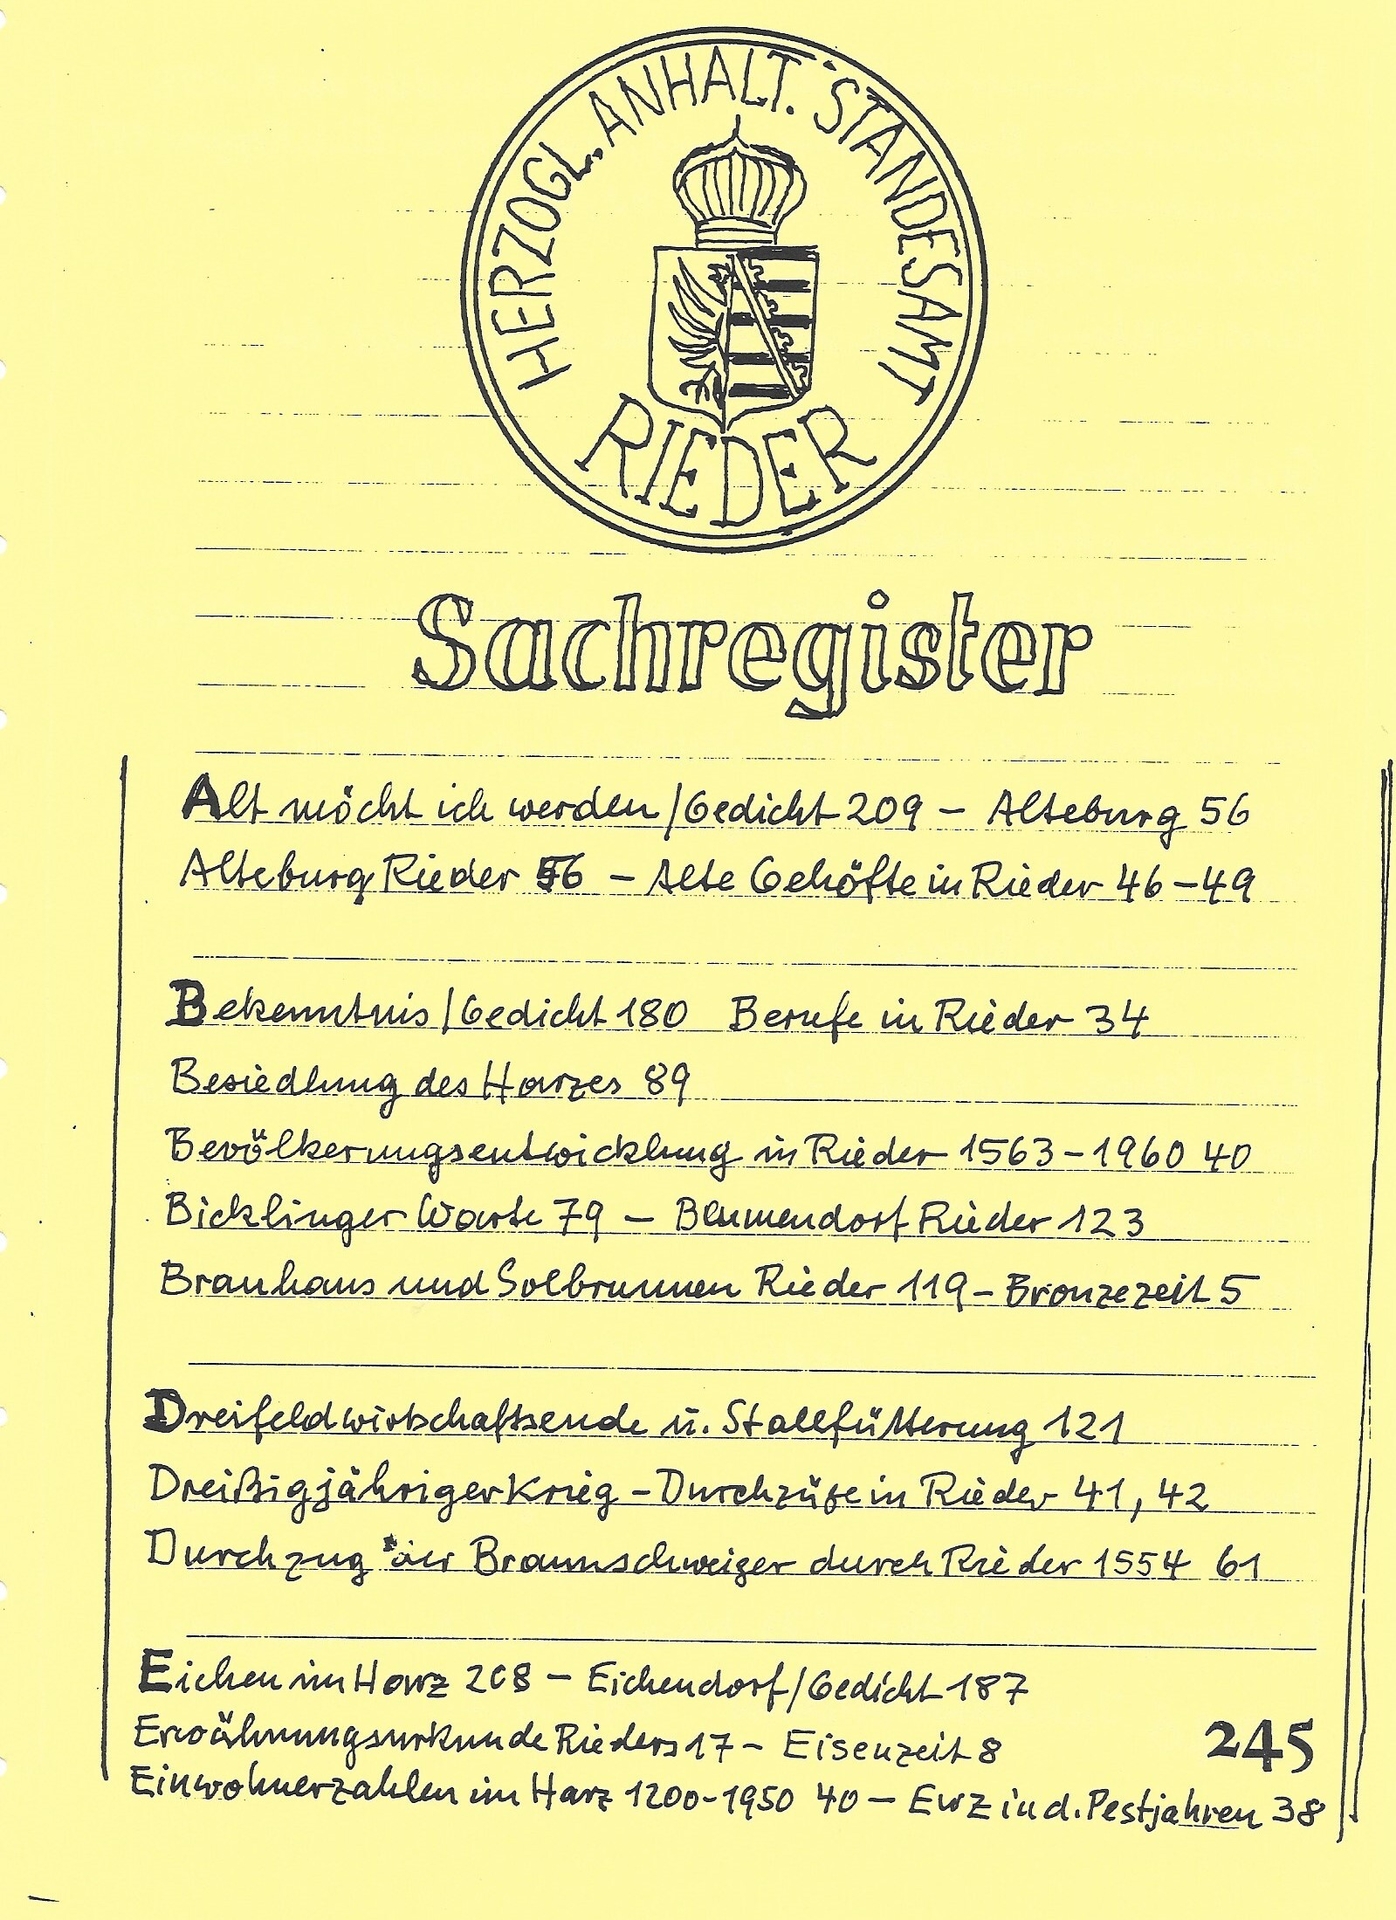 HERZOGL. ANHALT. STANDESAMT
RIEDER
Sachregister
Alt möcht ich werden/Gedicht 209 – Alteburg 56
Alteburg Rieder 56 – Alte Gehöfte in Rieder 46–49
Bekenntnis/Gedicht 180 Berufe in Rieder 34
Besiedlung des Harzes 89
Bevölkerungsentwicklung in Rieder 1563–1960 40
Bicklinger Warte 79 – Blumendorf Rieder 123
Brauhaus und Solbrunnen Rieder 119 – Bronzezeit 5
Dreifeldwirtschaftsende u. Stallfütterung 121
Dreißigjähriger Krieg – Durchzüge in Rieder 41, 42
Durchzug der Braunschweiger durch Rieder 1554 61
Eichen im Harz 208 – Eichendorf/Gedicht 187
Erwähnungsurkunde Rieders 17 – Eisenzeit 8
245
Einwohnerzahlen im Harz 1200-1950 40 – EWZ in d. Pestjahren 38